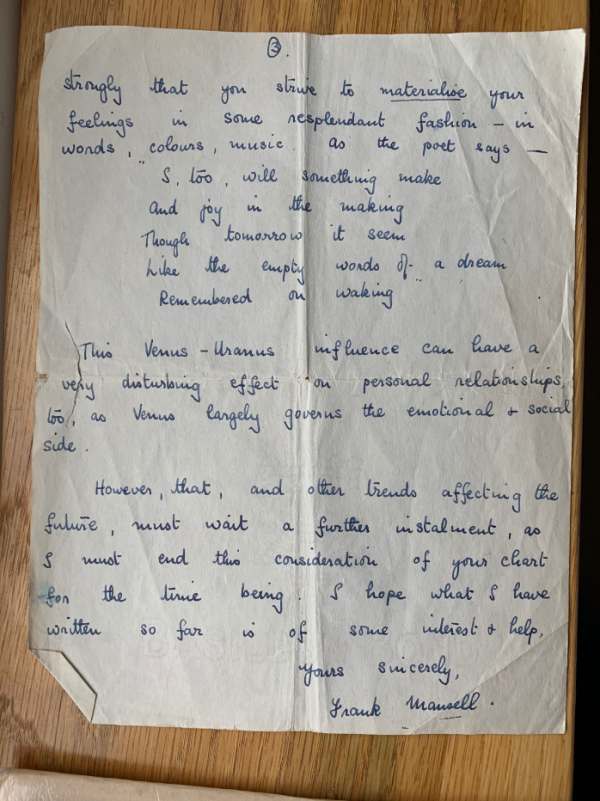 ③.
strongly that you strive to materialise your
feelings in some resplendant fashion – in
words, colours, music. As the poet says —
"I, too, will something make
And joy in the making
Though tomorrow it seem
Like the empty words of a dream
Remembered on waking"
This Venus – Uranus influence can have a
very disturbing effect on personal relationships,
too, as Venus largely governs the emotional & social
side.
However, that, and other trends affecting the
future, must wait a further instalment, as
I must end this consideration of your chart
for the time being. I hope what I have
written so far is of some interest & help.
Yours sincerely,
Frank Mansell.